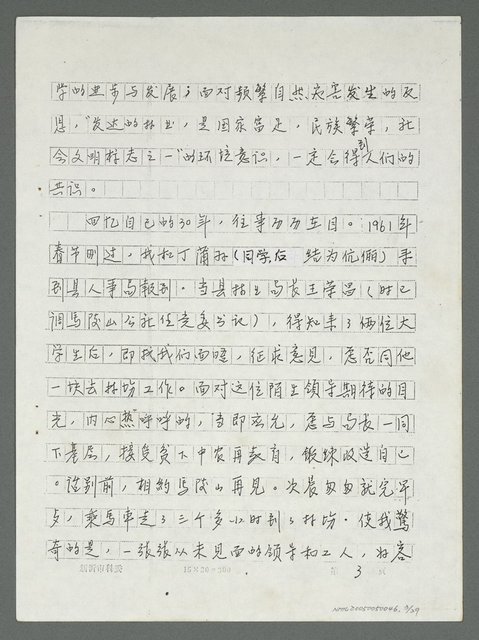 学的进步与发展；面对频繁自然灾害发生的反
思，"发达的林业，是国家富足，民族繁荣，社
会文明标志之一"的环境意识，一定会得到人们的
共识。
回忆自己的30年，往事历历在目。1961年
春节刚过，我和丁蒲孙(同学后 结为伉俪)来
到县人事局报到。当县林业局长王荣昌(时已
调马陵山公社任党委书记)，得知来了俩位大
学生后，即找我们面晤，征求意见，愿否同他
一块去林场工作。面对这位陌生领导期待的目
光，内心热呼呼的，当即应允，愿与局长一同
下基层，接受贫下中农再教育，锻炼改造自己
。临别前，相约马陵山再见。次晨匆匆就完早
点，乘馬車走了三个多小时到了林场。使我驚
奇的是，一张张从未见面的领导和工人，好客
3
NMTL20050050046. 3/29